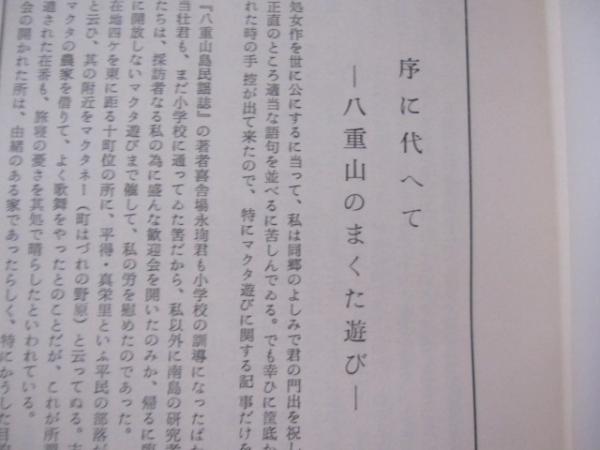 序に代へて
―八重山のまくた遊び―
処女作を世に公にするに当って、私は同郷のよしみで君の門出を祝し
正直のところ適当な語句を並べるに苦しんでゐる。でも幸ひに筐底か
れた時の手控が出て来たので、特にマクタ遊びに関する記事だけを
『八重山島民謡誌』の著者喜舎場永珣君も小学校の訓導になったばか
当壮君も、まだ小学校に通ってゐた筈だから、私以外に南島の研究者
たちは、採訪者なる私の為に盛んな歓迎会を開いたのみか、帰るに
に開放しないマクタ遊びまで催して、私の労を慰めたのであった。
在地四ケを東に距る十町位の所に、平得・真栄里といふ平民の部落が
と云ひ、其の附近をマクタネー（町はづれの野原）と云ってゐる。
マクタの農家を借りて、よく歌舞をやったとのことだが、これが所
遣された在番も、旅寝の憂さを其処で晴らしたといわれている。
会の開かれた所は、由緒のある家であったらしく、特にかうした目